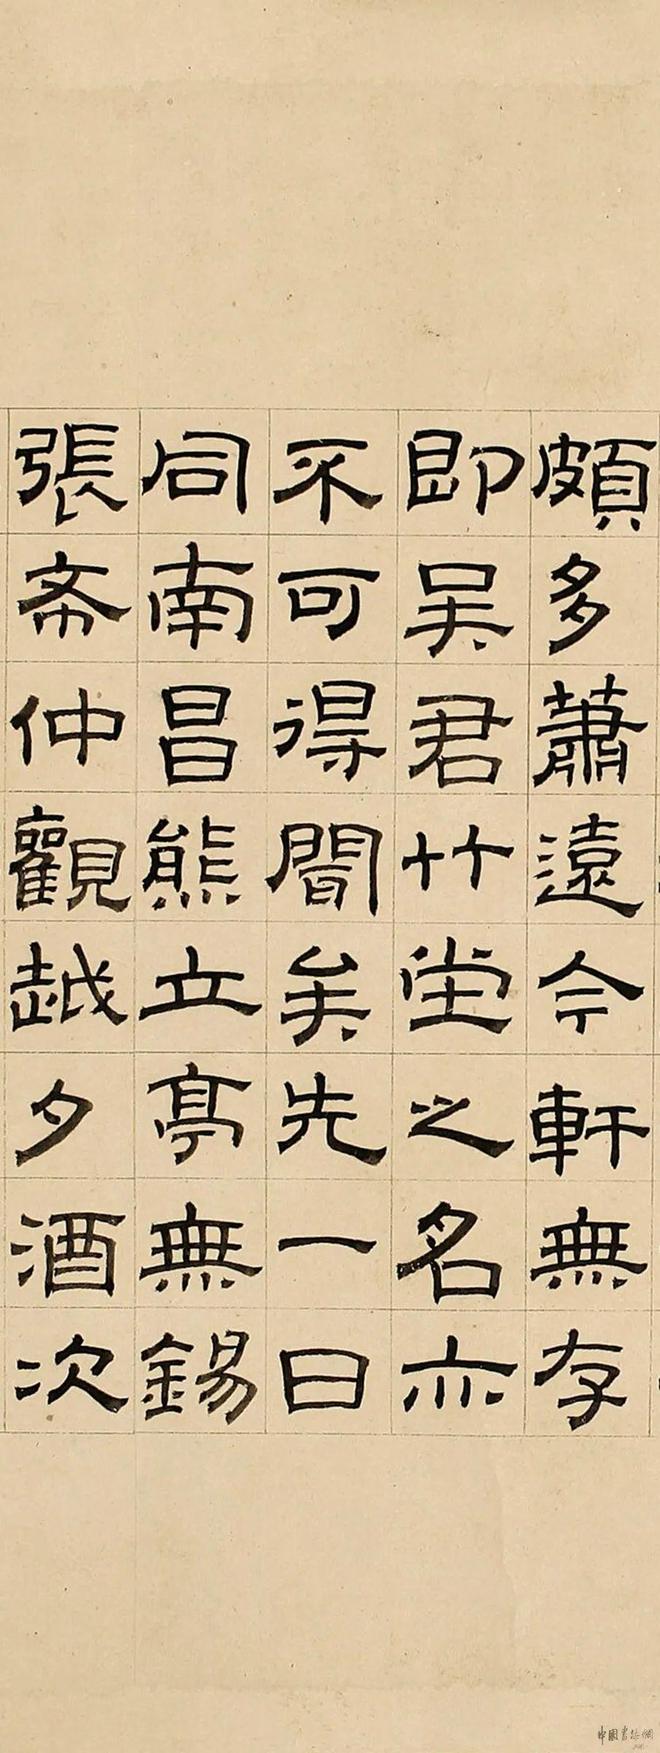 頗多蕭遠今軒無存
即吴君竹堂之名亦
不可得聞矣先一日
同南昌熊立亭無錫
張斋仲觀越夕酒次
中国书法网